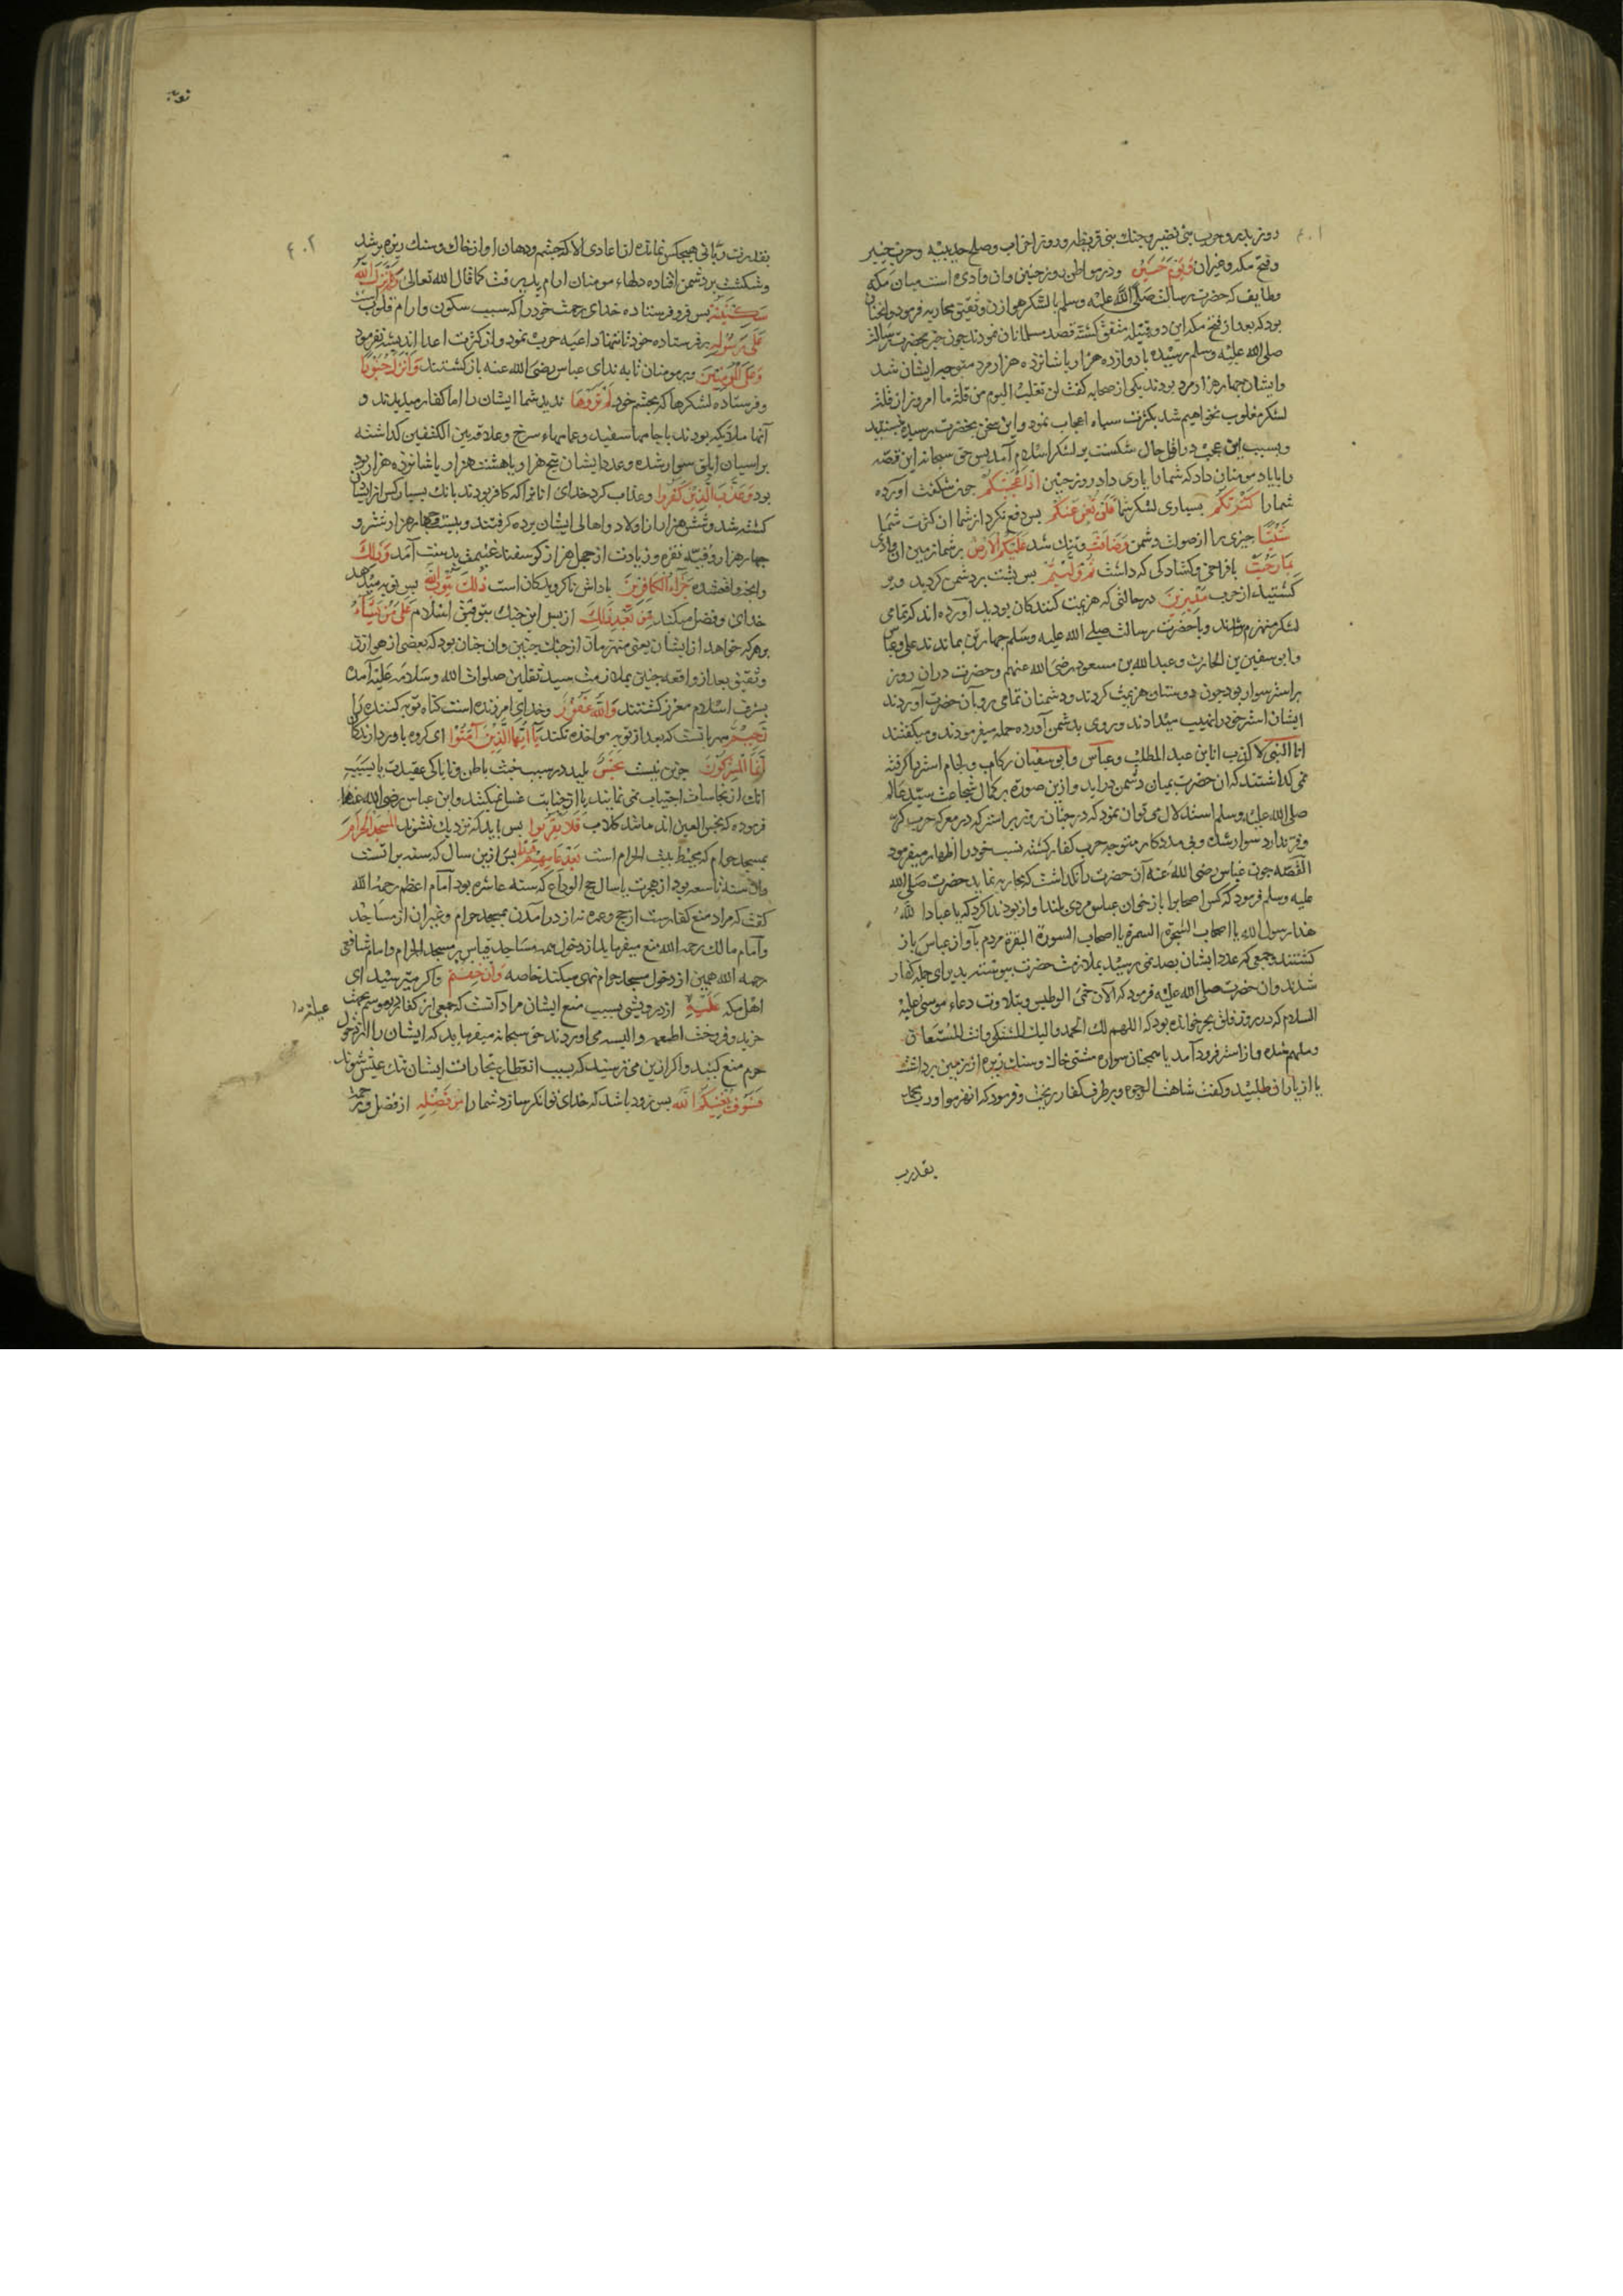 ۴۰۱
روز بدر و حرب بنی نضیر و جنك بنی قریظه و روز احزاب و صلح حدیبیه و حرب خیبر
و فتح مکه و غیران وَیَوْمَ حُنَیْنٍ و در مواطن روز حنین وان وادی است میان مکه
و طایف که حضرت رسالت صلی الله علیه وسلم بالشکر هوازن و ثقیف محاربه فرمود و انجنان
بود که بعد از فتح مکه این دو قبیله متفق کشته قصد مسلمانان نمودند چون خبر بحضرت رسالت
صلی الله علیه وسلم رسیده با دوازده هزار یا شانزده هزار مرد متوجه ایشان شد
و ایشان چهار هزار مرد بودند یکی از صحابه کفت لن تغلب الیوم من قلة ما امروز از قلت
لشکر مغلوب نخواهیم شد بکثرت سپاه اعجاب نمود و این سخن بحضرت رسیده نپسندید
و بسبب این عجب در اول حال شکست بر لشکر اسلام آمد پس حق سبحانه این قصه
را یاد مومنان داد که شما را یاری داد روز حنین اِذْ اَعْجَبَتْکُمْ چون بشکفت آورده
شما را کَثْرَتُکُمْ بسیاری لشکر شما فَلَنْ تُغْنِ عَنْکُمْ پس دفع نکرد از شما ان کثرت شما
شَیْئًا چیزی را از صولت دشمن وَضَاقَتْ و تنك شد عَلَیْکُمُ الْاَرْضُ بر شما زمین ان وادی
بِمَا رَحُبَتْ با فراخی و کشادکی که داشت ثُمَّ وَلَّیْتُمْ پس پشت بر دشمن کردید و بر
کشتید از حرب مُدْبِرِینَ در حالتی که هزیمت کنندکان بودید آورده اند که تمامی
لشکر منهزم شدند و با حضرت رسالت صلی الله علیه وسلم چهار تن بماندند علی و عباس
و ابو سفین بن الحارث و عبد الله بن مسعود رضی الله عنهم و حضرت دران روز
بر استر سوار بود چون دوستان هزیمت کردند و دشمنان تمامی رو بآن حضرت آوردند
ایشان استر خود را نهیب میدادند و روی بدشمن آورده حمله میفرمودند و میکفتند
انا النبی لا کذب انا بن عبد المطلب و عباس و ابو سفیان رکاب و لجام استر را کرفته
نمی کذاشتند که ان حضرت بمیان دشمن دراید و ازین صورة بر کمال شجاعت سید عالم
صلی الله علیه وسلم استدلال می توان نمود که در چنان روز بر استر که در معرکه حرب کر
و فر ندارد سوار شده و بی مددکار متوجه حرب کفار کشته نسب خود را اظهار میفرمود
القصه چون عباس رضی الله عنه آن حضرت را نکذاشت که محاربه نماید حضرت صلی الله
علیه وسلم فرمود که کس اصحاب را باز خوان عباس مردی بلند آواز بود ندا کرد که یا عباد الله
هذا رسول الله یا اصحاب الشجرة السمرة یا اصحاب السورة البقرة مردم بآواز عباس باز
کشتند و جمعی که عدد ایشان بصد نمی رسید بملازمت حضرت پیوسته بدیرای حمله کفار
شدند وان حضرت صلی الله علیه فرمود که الآن حمی الوطیس و بتلاوت دعاء موسی علیه
السلام که در روز فلق بحر خوانده بود که اللهم لك الحمد والیك المشتکی وانت المستعان
و ملهم شده و از استر فرود آمد یا همچنان سواره مشتی خاك و سنك ریزه از زمین برداشت
یا از یاران طلبید و کفت شاهت الوجوه و بر طرف کفار ریخت و فرمود که انهزموا ورب محمد
بقدرت
توبه
۴۰۲
بقدرت ربانی هیچکس نمانده از اعادی الا که چشم و دهان او از خاك و سنك ریزه پر شد
و شکست بر دشمن افتاده دلهاء مومنان ارام پذیرفت کما قال الله تعالی ثُمَّ اَنْزَلَ اللّٰهُ
سَکِینَتَهُ پس فرو فرستاده خدای رحمت خود را که سبب سکون و ارام قلوب است
عَلَی رَسُولِهِ بر فرستاده خود تا تنها داعیه حرب نمود و از کثرت اعدا اندیشه نفرمود
وَعَلَی الْمُؤْمِنِینَ و بر مومنان تا به ندای عباس رضی الله عنه باز کشتند وَاَنْزَلَ جُنُودًا
و فرستاده لشکرها که بچشم خود لَمْ تَرَوْهَا ندیدید شما ایشان را اما کفار میدیدند و
آنها ملائکه بودند با جامهاء سفید و عمامهاء سرخ و علاقه بین الکتفین کذاشته
بر اسپان ابلق سوار شده و عدد ایشان پنج هزار و یا هشت هزار یا شانزده هزار بود
بود وَعَذَّبَ الَّذِینَ کَفَرُوا و عذاب کرد خدای انانرا که کافر بودند بانك بسیار کس از ایشان
کشته شد و شش هزار از اولاد و اهالی ایشان برده کرفتند و بیست و چهار هزار شتر و
چهار هزار وقیه نقره و زیادت از چهل هزار کوسفند غنیمت بدست آمد وَذٰلِكَ
وانچه واقع شده جَزَاءُ الْکَافِرِینَ پاداش ناکرویدکان است ذٰلِكَ یَتُوبُ اللّٰهُ پس توبه میدهد
خدای و فضل میکند مِنْ بَعْدِ ذٰلِكَ از پس این جنك بتوفیق اسلام عَلَی مَنْ یَشَاءُ
بر هر که خواهد از ایشان یعنی منهزمان از جنك حنین وان چنان بود که بعضی از هوازن
و ثقیف بعد از واقعه حنین بملازمت سید ثقلین صلوات الله وسلامه علیه آمده
بشرف اسلام معزز کشتند وَاللّٰهُ غَفُورٌ و خدای امرزنده است کناه توبه کننده را
رَحِیمٌ مهربانست که بعد از توبه مواخذه نکند یَا اَیُّهَا الَّذِینَ آمَنُوا ای کروه باور دارندکان
اِنَّمَا الْمُشْرِکُونَ جزین نیست نَجَسٌ پلیدند بسبب خبث باطن و ناپاکی عقیدت یا بسبب
انك از نجاسات اجتناب نمی نمایند یا از جنابت غسل نمیکنند و ابن عباس رضی الله عنهما
فرموده که نجس العین اند مانند کلاب فَلَا یَقْرَبُوا پس باید که نزدیك نشوند الْمَسْجِدَ الْحَرَامَ
بمسجد حرام که محیط بیت الحرام است بَعْدَ عَامِهِمْ هٰذَا پس ازین سال که سنه براتست
وان سنه تاسعه بود از هجرت یا سال حج الوداع که سنه عاشره بود امام اعظم رحمه الله
کفت که مراد منع کفارست از حج و عمره نه از در آمدن بمسجد حرام و غیر ان از مساجد
و امام مالك رحمه الله منع میفرماید از دخول همه مساجد قیاس بر مسجد الحرام و امام شافعی
رحمه الله همین از دخول مسجد حرام نهی میکند خاصه وَاِنْ خِفْتُمْ واکر میترسید ای
اهل مکه عَلَیْهِ از درویشی بسبب منع ایشان مراد آنست که جمعی از کفار در موسم بجهت
خرید و فروخت اطعمه و البسه می اوردند حق سبحانه میفرماید که ایشان را از دخول
حرم منع کنید و اکر ازین می ترسید که بسبب انقطاع تجارات ایشان تنك عیش شوند
فَسَوْفَ یُغْنِیکُمُ اللّٰهُ پس زود باشد که خدای توانکر سازد شما را مِنْ فَضْلِهِ از فضل و رحمت